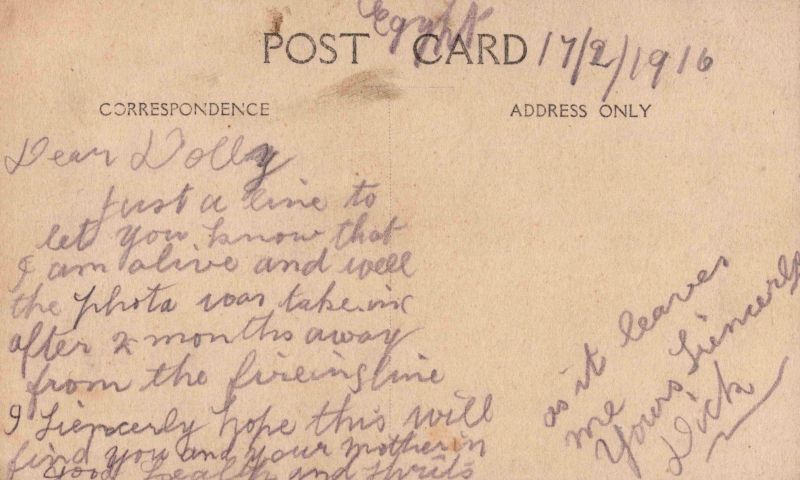 Egypt
POST CARD 17/2/1916
CORRESPONDENCE
ADDRESS ONLY
Dear Dolly
Just a line to
let you know that
I am alive and well
the photo was take in
after 2 months away
from the fireing line
I Siencerly hope this will
find you and your mother in
good health and sprits
as it leaves
me
Yours Siencerly
Dick